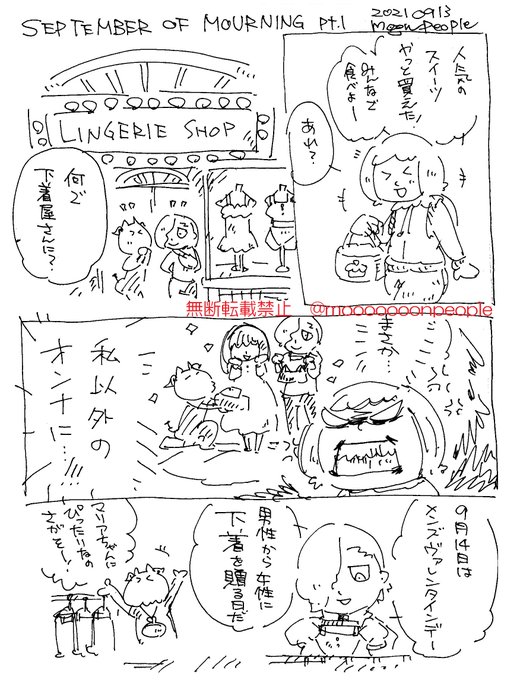 SEPTEMBER OF MOURNING pt.1
20210913
moonpeople
人気の
スイーツ
やっと買えた!
みんなで
食べよー
あれ?
LINGERIE SHOP
何で
下着屋さんに?
無断転載禁止 @mooooooonpeople
まさか…
私以外の
オンナに…!!
9月14日は
メンズヴァレンタインデー
男性から女性に
下着を贈る日だ
マリアちゃんに
ぴったりなの
さがそー!